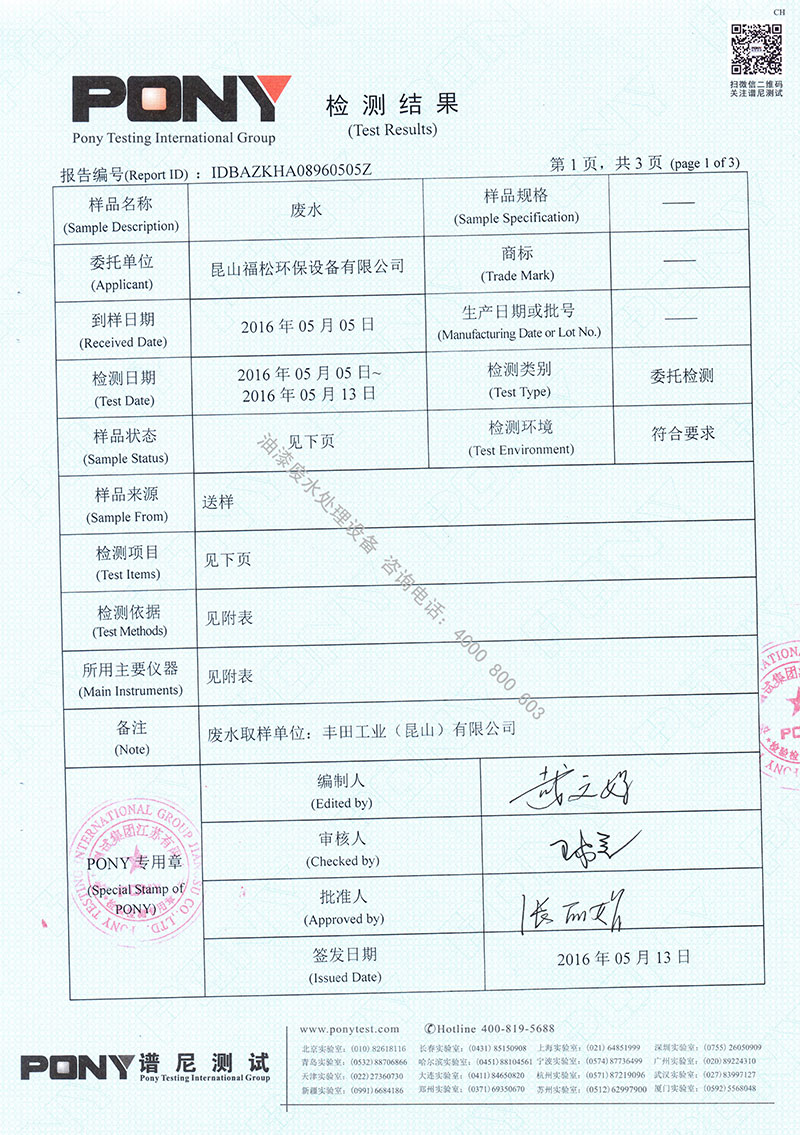 CH
扫微信二维码
关注谱尼测试
PONY
Pony Testing International Group
检测结果
(Test Results)
报告编号(Report ID) ：IDBAZKHA08960505Z
第 1 页，共 3 页 (page 1 of 3)
样品名称
(Sample Description)
废水
样品规格
(Sample Specification)
——
委托单位
(Applicant)
昆山福松环保设备有限公司
商标
(Trade Mark)
——
到样日期
(Received Date)
2016 年 05 月 05 日
生产日期或批号
(Manufacturing Date or Lot No.)
——
检测日期
(Test Date)
2016 年 05 月 05 日~
2016 年 05 月 13 日
检测类别
(Test Type)
委托检测
样品状态
(Sample Status)
见下页
检测环境
(Test Environment)
符合要求
样品来源
(Sample From)
送样
检测项目
(Test Items)
见下页
检测依据
(Test Methods)
见附表
所用主要仪器
(Main Instruments)
见附表
备注
(Note)
废水取样单位：丰田工业（昆山）有限公司
油漆废水处理设备 咨询电话：4000 800 603
PONY 专用章
(Special Stamp of
PONY)
编制人
(Edited by)
审核人
(Checked by)
批准人
(Approved by)
签发日期
(Issued Date)
2016 年 05 月 13 日
PONY 谱尼测试
Pony Testing International Group
www.ponytest.com ✆Hotline 400-819-5688
北京实验室：(010) 82618116 长春实验室：(0431) 85150908 上海实验室：(021) 64851999 深圳实验室：(0755) 26050909
青岛实验室：(0532) 88706866 哈尔滨实验室：(0451) 88104561 宁波实验室：(0574) 87736499 广州实验室：(020) 89224310
天津实验室：(022) 27360730 大连实验室：(0411) 84650820 杭州实验室：(0571) 87219096 武汉实验室：(027) 83997127
新疆实验室：(0991) 6684186 郑州实验室：(0371) 69350670 苏州实验室：(0512) 62997900 厦门实验室：(0592) 5568048